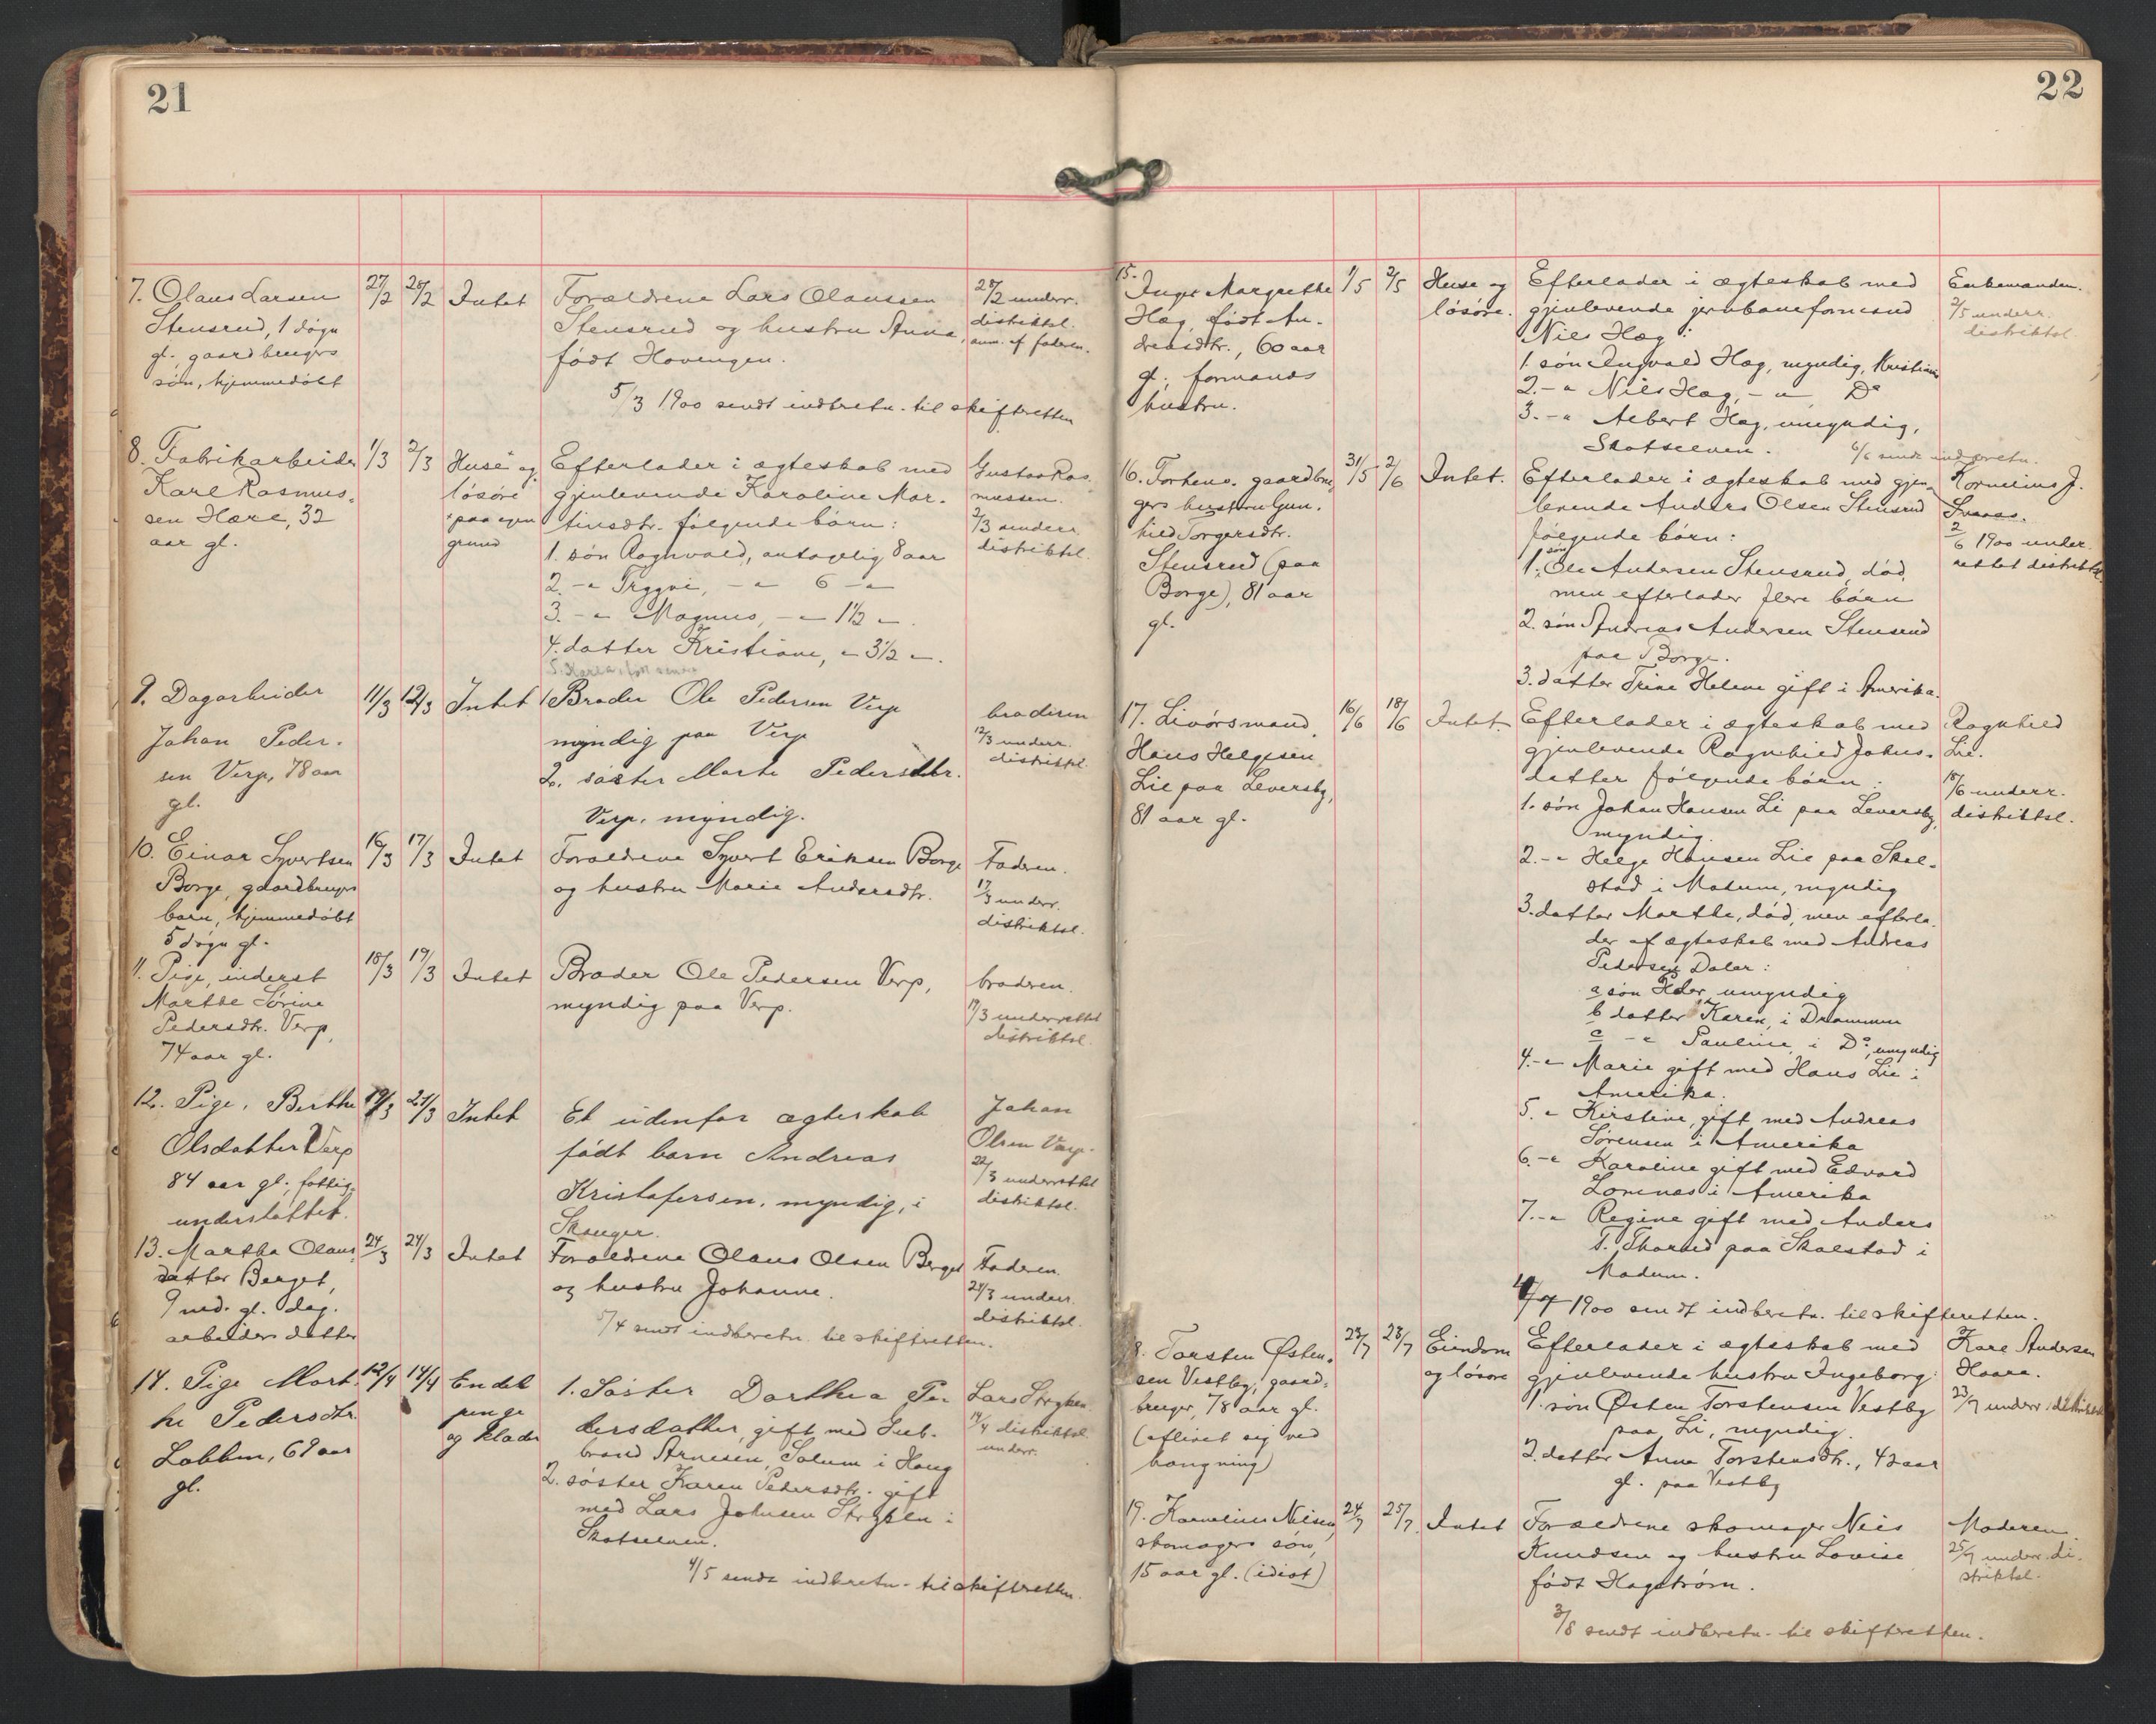 21
7. Olaus Larsen 27/2 28/2 Intet Forældrene Lars Olaussen 28/2 underr.
Stensrud, 1 døgn Stensrud og hustru Anna, distriktsl.
gl. gaardbrugers født Hovengen. anm. af faderen.
søn, hjemmedøbt
5/3 1900 sendt indberetn. til skifteretten
8. Fabrikarbeider 1/3 2/3 Huse og Efterlader i ægteskab med Gustav Ras-
Karl Rasmus- løsøre gjenlevende Karoline Mar- mussen.
sen Hære, 32 paa egen tinsdtr. følgende børn: 2/3 underr.
aar gl. grund 1. søn Ragnvald, antagelig 8 aar distriktsl.
2. -"- Tryggve, -"- 6 -"-
3. -"- Magnus, -"- 1½ -"-
4. datter Kristiane, -"- 3½ -"-
9. Dagarbeider 11/3 12/3 Intet 1 Broder Ole Pedersen Verp broderen
Johan Peder- myndig paa Verp 12/3 underr.
sen Verp, 78 aar 2. søster Marte Pedersdtr. distriktsl.
gl. Verp, myndig.
10. Einar Syvertsen 16/3 17/3 Intet Forældrene Syvert Eriksen Borge Faderen.
Borge, gaardbrugers og hustru Marie Andersdtr. 17/3 underr.
barn, hjemmedøbt distriktsl.
5 døgn gl.
11. Pige, inderst 18/3 19/3 Intet Broder Ole Pedersen Verp, broderen.
Marthe Sørine myndig paa Verp. 19/3 underrettet
Pedersdtr. Verp, distriktsl.
74 aar gl.
12. Pige, Berthe 19/3 21/3 Intet Et udenfor ægteskab Johan
Olsdatter Verp født barn Andreas Olsen Verp.
84 aar gl., fattig- Kristofersen, myndig, i 22/3 underrettet
understøttet. Skauger. distriktsl.
13. Martha Olaus- 24/3 24/3 Intet Forældrene Olaus Olsen Berget Faderen.
datter Berget, og hustru Johanne. 24/3 underr.
9 md. gl. dag- distriktsl.
arbeiders datter 5/4 sendt indberetn. til skifteretten.
14. Pige Mart- 12/4 14/4 En del 1. Søster Dorthea Pe- Lars Stryken.
he Pedersdtr. penge dersdatter, gift med Gul- 14/4 distriktsl.
Løkken, 69 aar og klæder brand Arnesen, Solum i Houg underr.
gl. 2. søster Karen Pedersdtr. gift
med Lars Johnsen Stryken i
Skotselven.
4/5 sendt indberetn. til skifteretten.
22
15. Inger Margrethe 1/5 2/5 Huse og Efterlader i ægteskab med Enkemanden.
Hæg, født An- løsøre. gjenlevende jernbaneformand 2/5 underr.
dreasdtr., 60 aar Nils Hæg: distriktsl.
gl., formands 1. søn Ingvald Hæg, myndig, Kristiania
hustru. 2. -"- Nils Hæg, -"- Do
3. -"- Albert Hæg, umyndig,
Skotselven. 6/6 sendt indberetn.
16. Forhenv. gaardbru- 31/5 2/6 Intet. Efterlader i ægteskab med gjen- Kornelius J.
gers hustru Gun- levende Anders Olsen Stensrud
hild Torgersdtr. følgende børn: 2/6 1900 under-
Stensrud (paa 1. søn Ole Andersen Stensrud, død, rettet distriktsl.
Borge), 81 aar men efterlader flere børn
gl. 2. søn Andreas Andersen Stensrud
paa Borge.
3. datter Trine Helene gift i Amerika.
17. Livørsmand 16/6 18/6 Intet. Efterlader i ægteskab med Ragnhild
Hans Helgesen gjenlevende Ragnhild Johns- Lie.
Lie paa Leversby, datter følgende børn: 18/6 underr.
81 aar gl. 1. søn Johan Hansen Li paa Leversby, distriktsl.
myndig.
2. -"- Helge Hansen Lie paa Skal-
stad i Modum, myndig
3. datter Marthe, død, men efterla-
der af ægteskab med Andreas
Pedersen Daler:
a søn Peder, umyndig
b datter Karen, i Drammen
c -"- Pauline, i Do, umyndig
4. -"- Marie gift med Hans Lie i
Amerika.
5. -"- Kirstine, gift med Andreas
Sørensen i Amerika
6. -"- Karoline gift med Edvard
Lornæs i Amerika
7. -"- Regine gift med Anders
T. Thorud paa Skalstad i
Modum.
4/7 1900 sendt indberetn. til skifteretten.
8. Torsten Østen- 23/7 23/7 Eiendom Efterlader i ægteskab med Karl Andersen
sen Vestby, gaard- og løsøre gjenlevende hustru Ingeborg: Haare.
bruger, 78 aar gl. 1. søn Østen Torstensen Vestby 23/7 underr. distriktsl.
(aflivet sig ved paa Li, myndig.
hængning) 2. datter Anna Torstensdtr., 42 aar
gl. paa Vestby
19. Kornelius Nilsen, 24/7 25/7 Intet Forældrene skomager Nils Moderen.
skomagers søn, Knudsen og hustru Lovise 25/7 underr. di-
15 aar gl. (idiot) født Hagstrøm. striktsl.
3/8 sendt indberetn. til skifteretten.